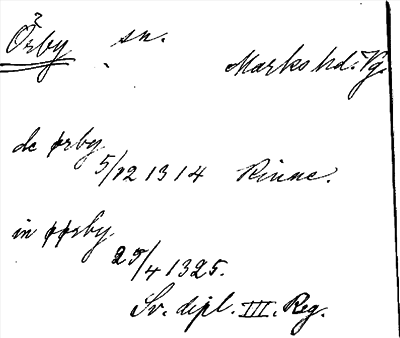 Örby sn.
Marks hd. Vg.
de ørby
5/12 1314 Rinne.
in øørby.
25/4 1325.
Sv. dipl. III. Reg.